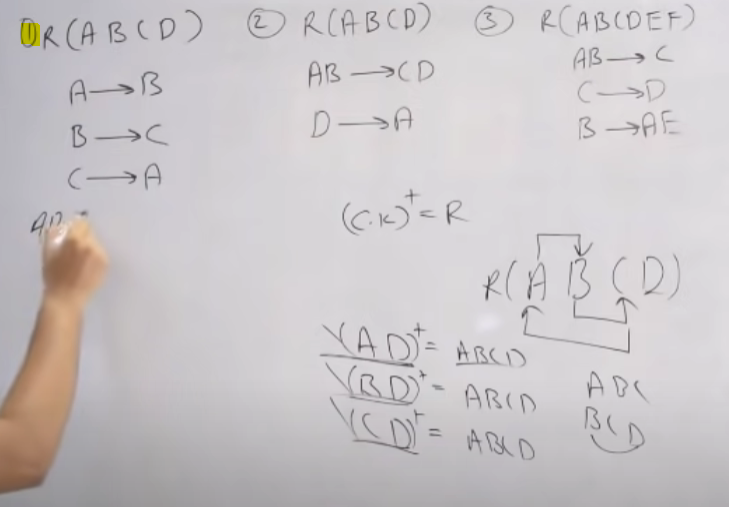 ① R(ABCD)
A → B
B → C
C → A
② R(ABCD)
AB → CD
D → A
③ R(ABCDEF)
AB → C
C → D
B → AE
(C.K)⁺ = R
R(A B C D)
(AD)⁺ = ABCD
(BD)⁺ = ABCD
(CD)⁺ = ABCD
ABC
BCD